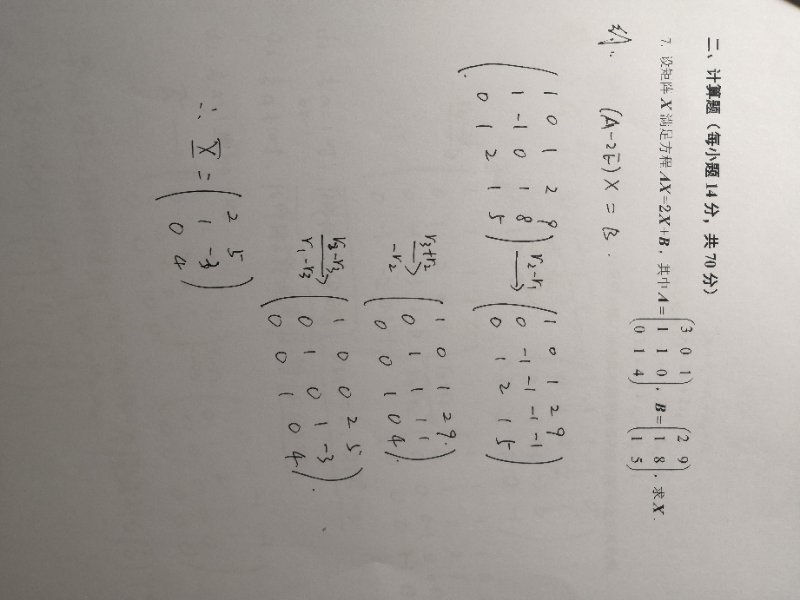 二、计算题（每小题 14 分，共 70 分）
7. 设矩阵 X 满足方程 AX=2X+B，其中 A=(3 0 1; 1 1 0; 0 1 4)，B=(2 9; 1 8; 1 5)，求 X.
解. (A-2E)X = B.
(1 0 1 2 9; 1 -1 0 1 8; 0 1 2 1 5) r2-r1 → (1 0 1 2 9; 0 -1 -1 -1 -1; 0 1 2 1 5)
r3+r2 → -r2 (1 0 1 2 9; 0 1 1 1 1; 0 0 1 0 4).
r2-r3 → r1-r3 (1 0 0 2 5; 0 1 0 1 -3; 0 0 1 0 4).
∴ X = (2 5; 1 -3; 0 4)